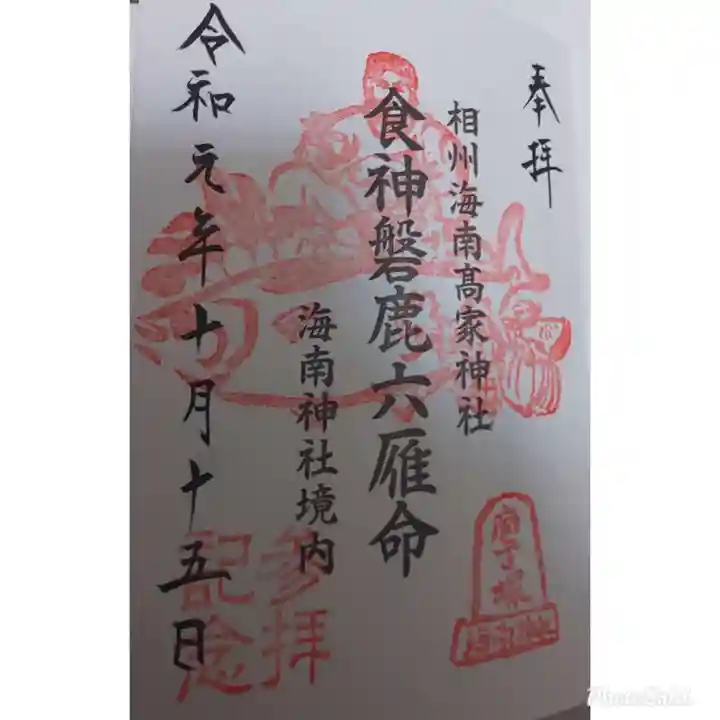 奉拝
相州海南髙家神社
食神磐鹿六雁命
海南神社境内
令和元年十月十五日
参拝
記念
庖丁塚